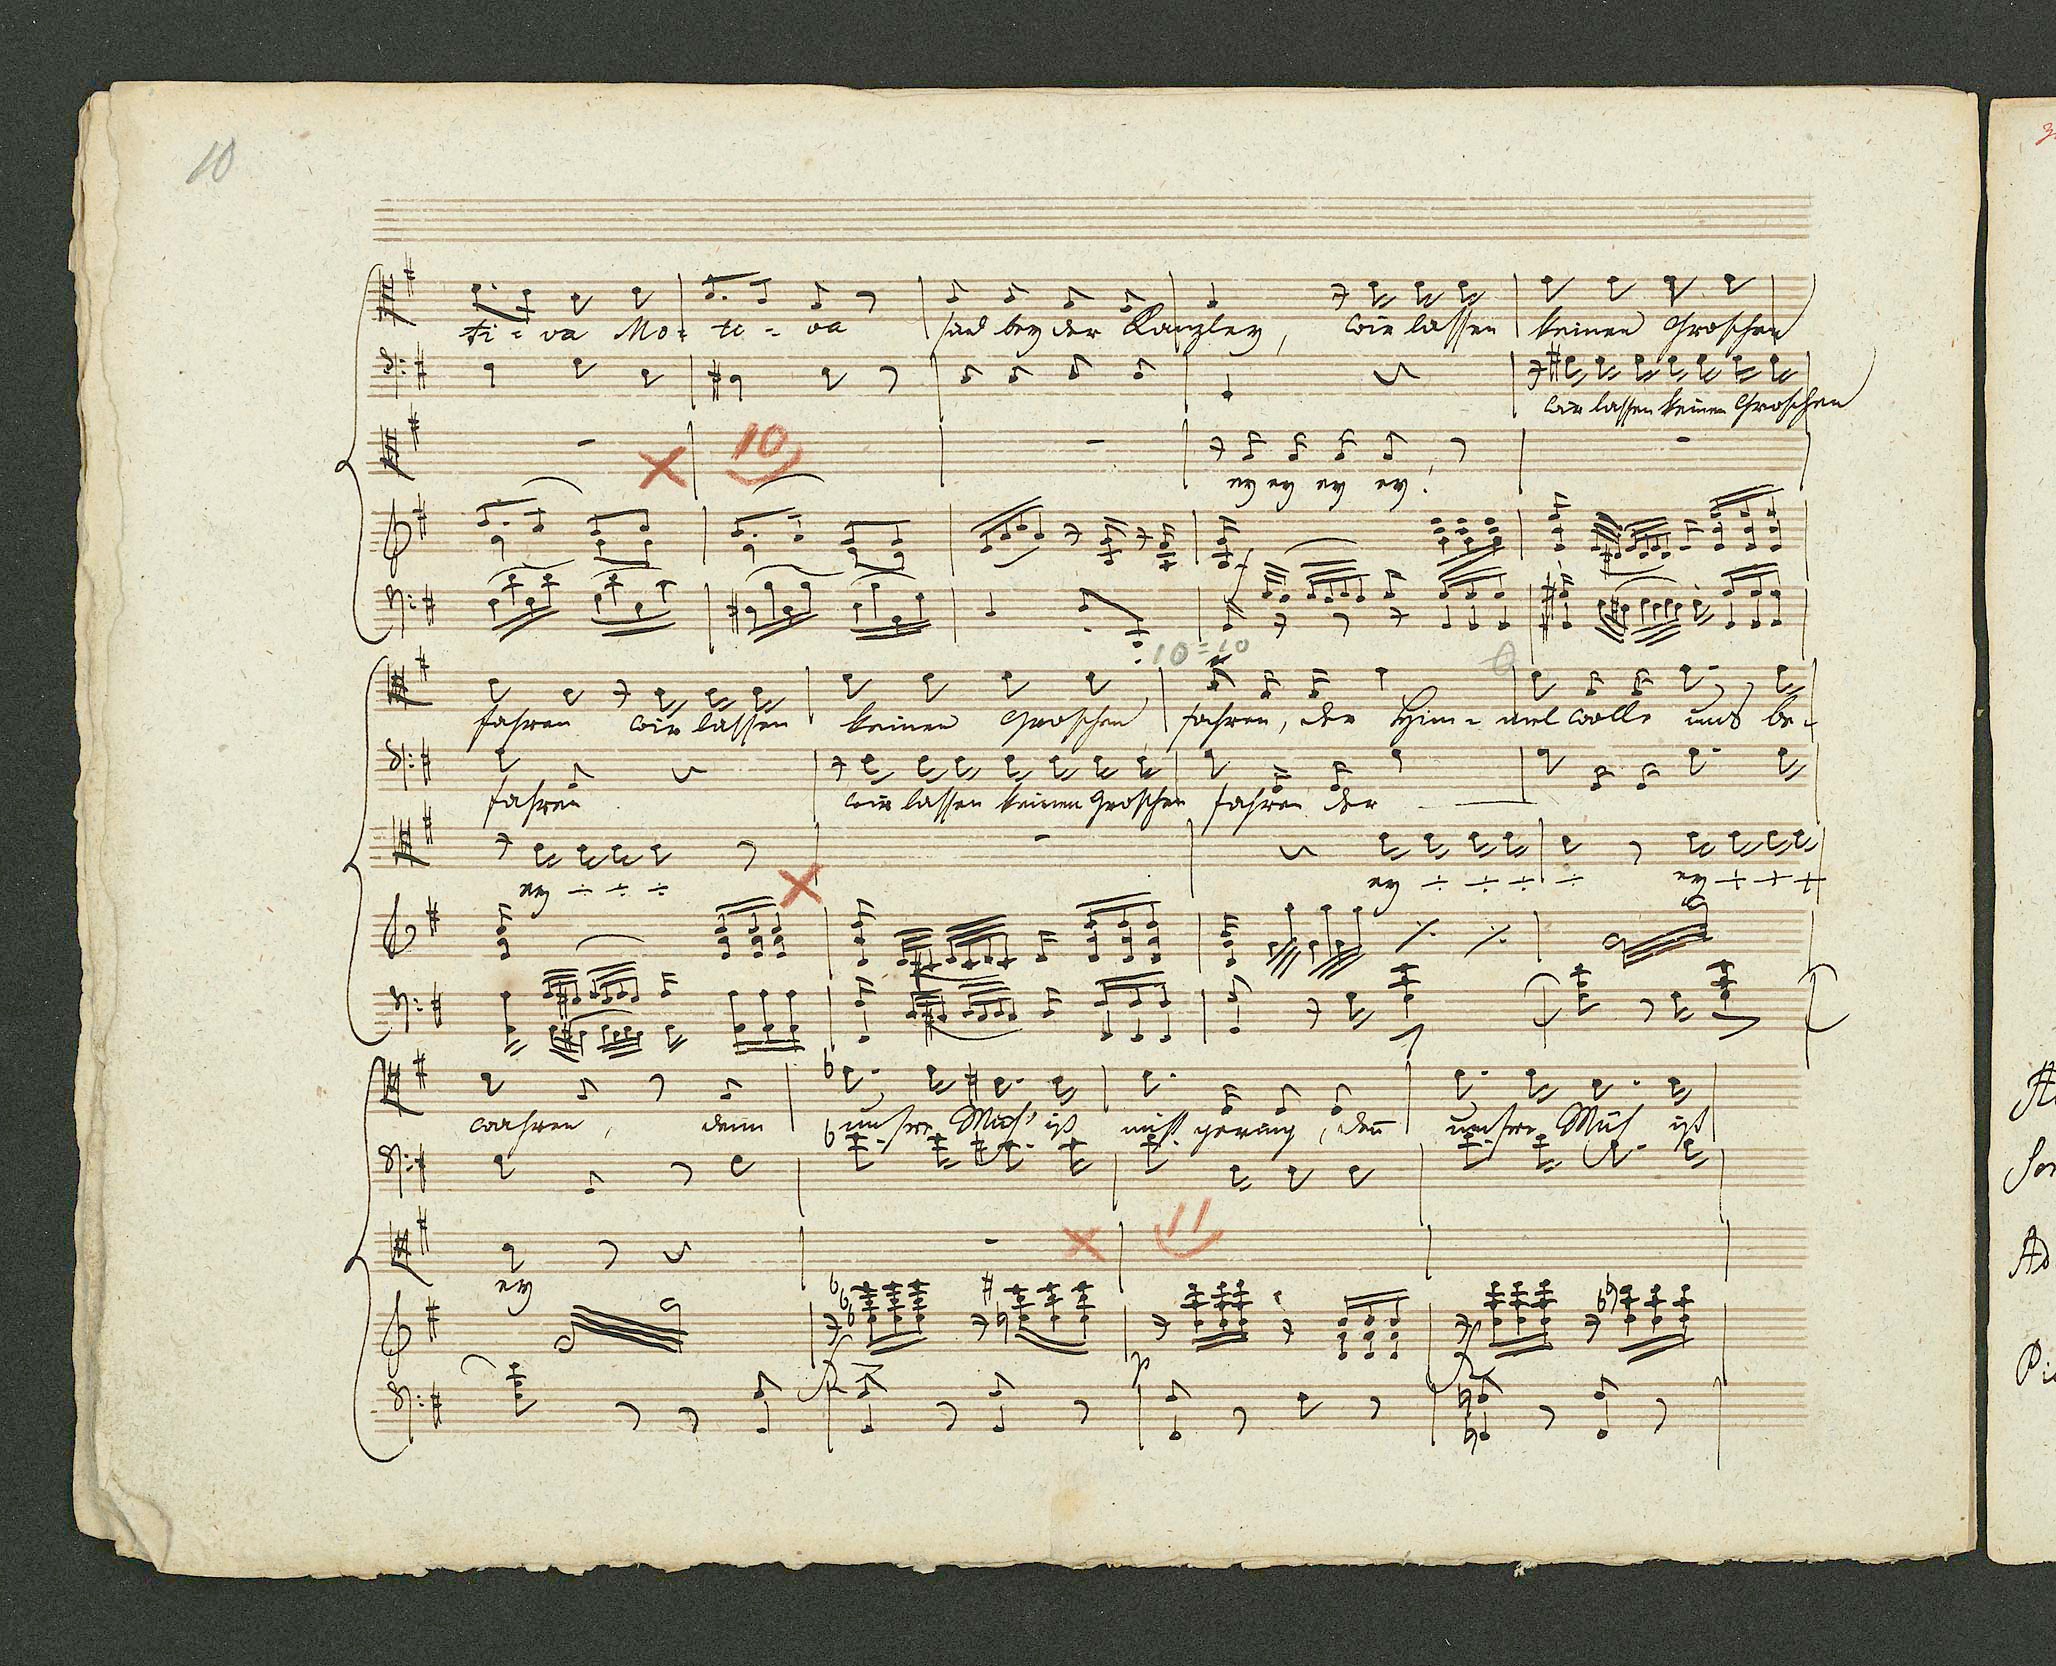 10
ti = va Mo = ti = va sind bey der Kanzley, wir lassen keinen Groschen
wir lassen keinen Groschen
10
ey ey ey ey!
10 = 10
fahren wir lassen keinen Groschen fahren, der Him = mel wolle uns be =
fahren wir lassen keinen Groschen fahren der
ey ÷ ÷ ÷ ey ÷ ÷ ÷ ÷ ey ÷ ÷ ÷
wahren, denn unsre Müh' ist nicht gering, den̄ unsre Müh ist
11
ey
p